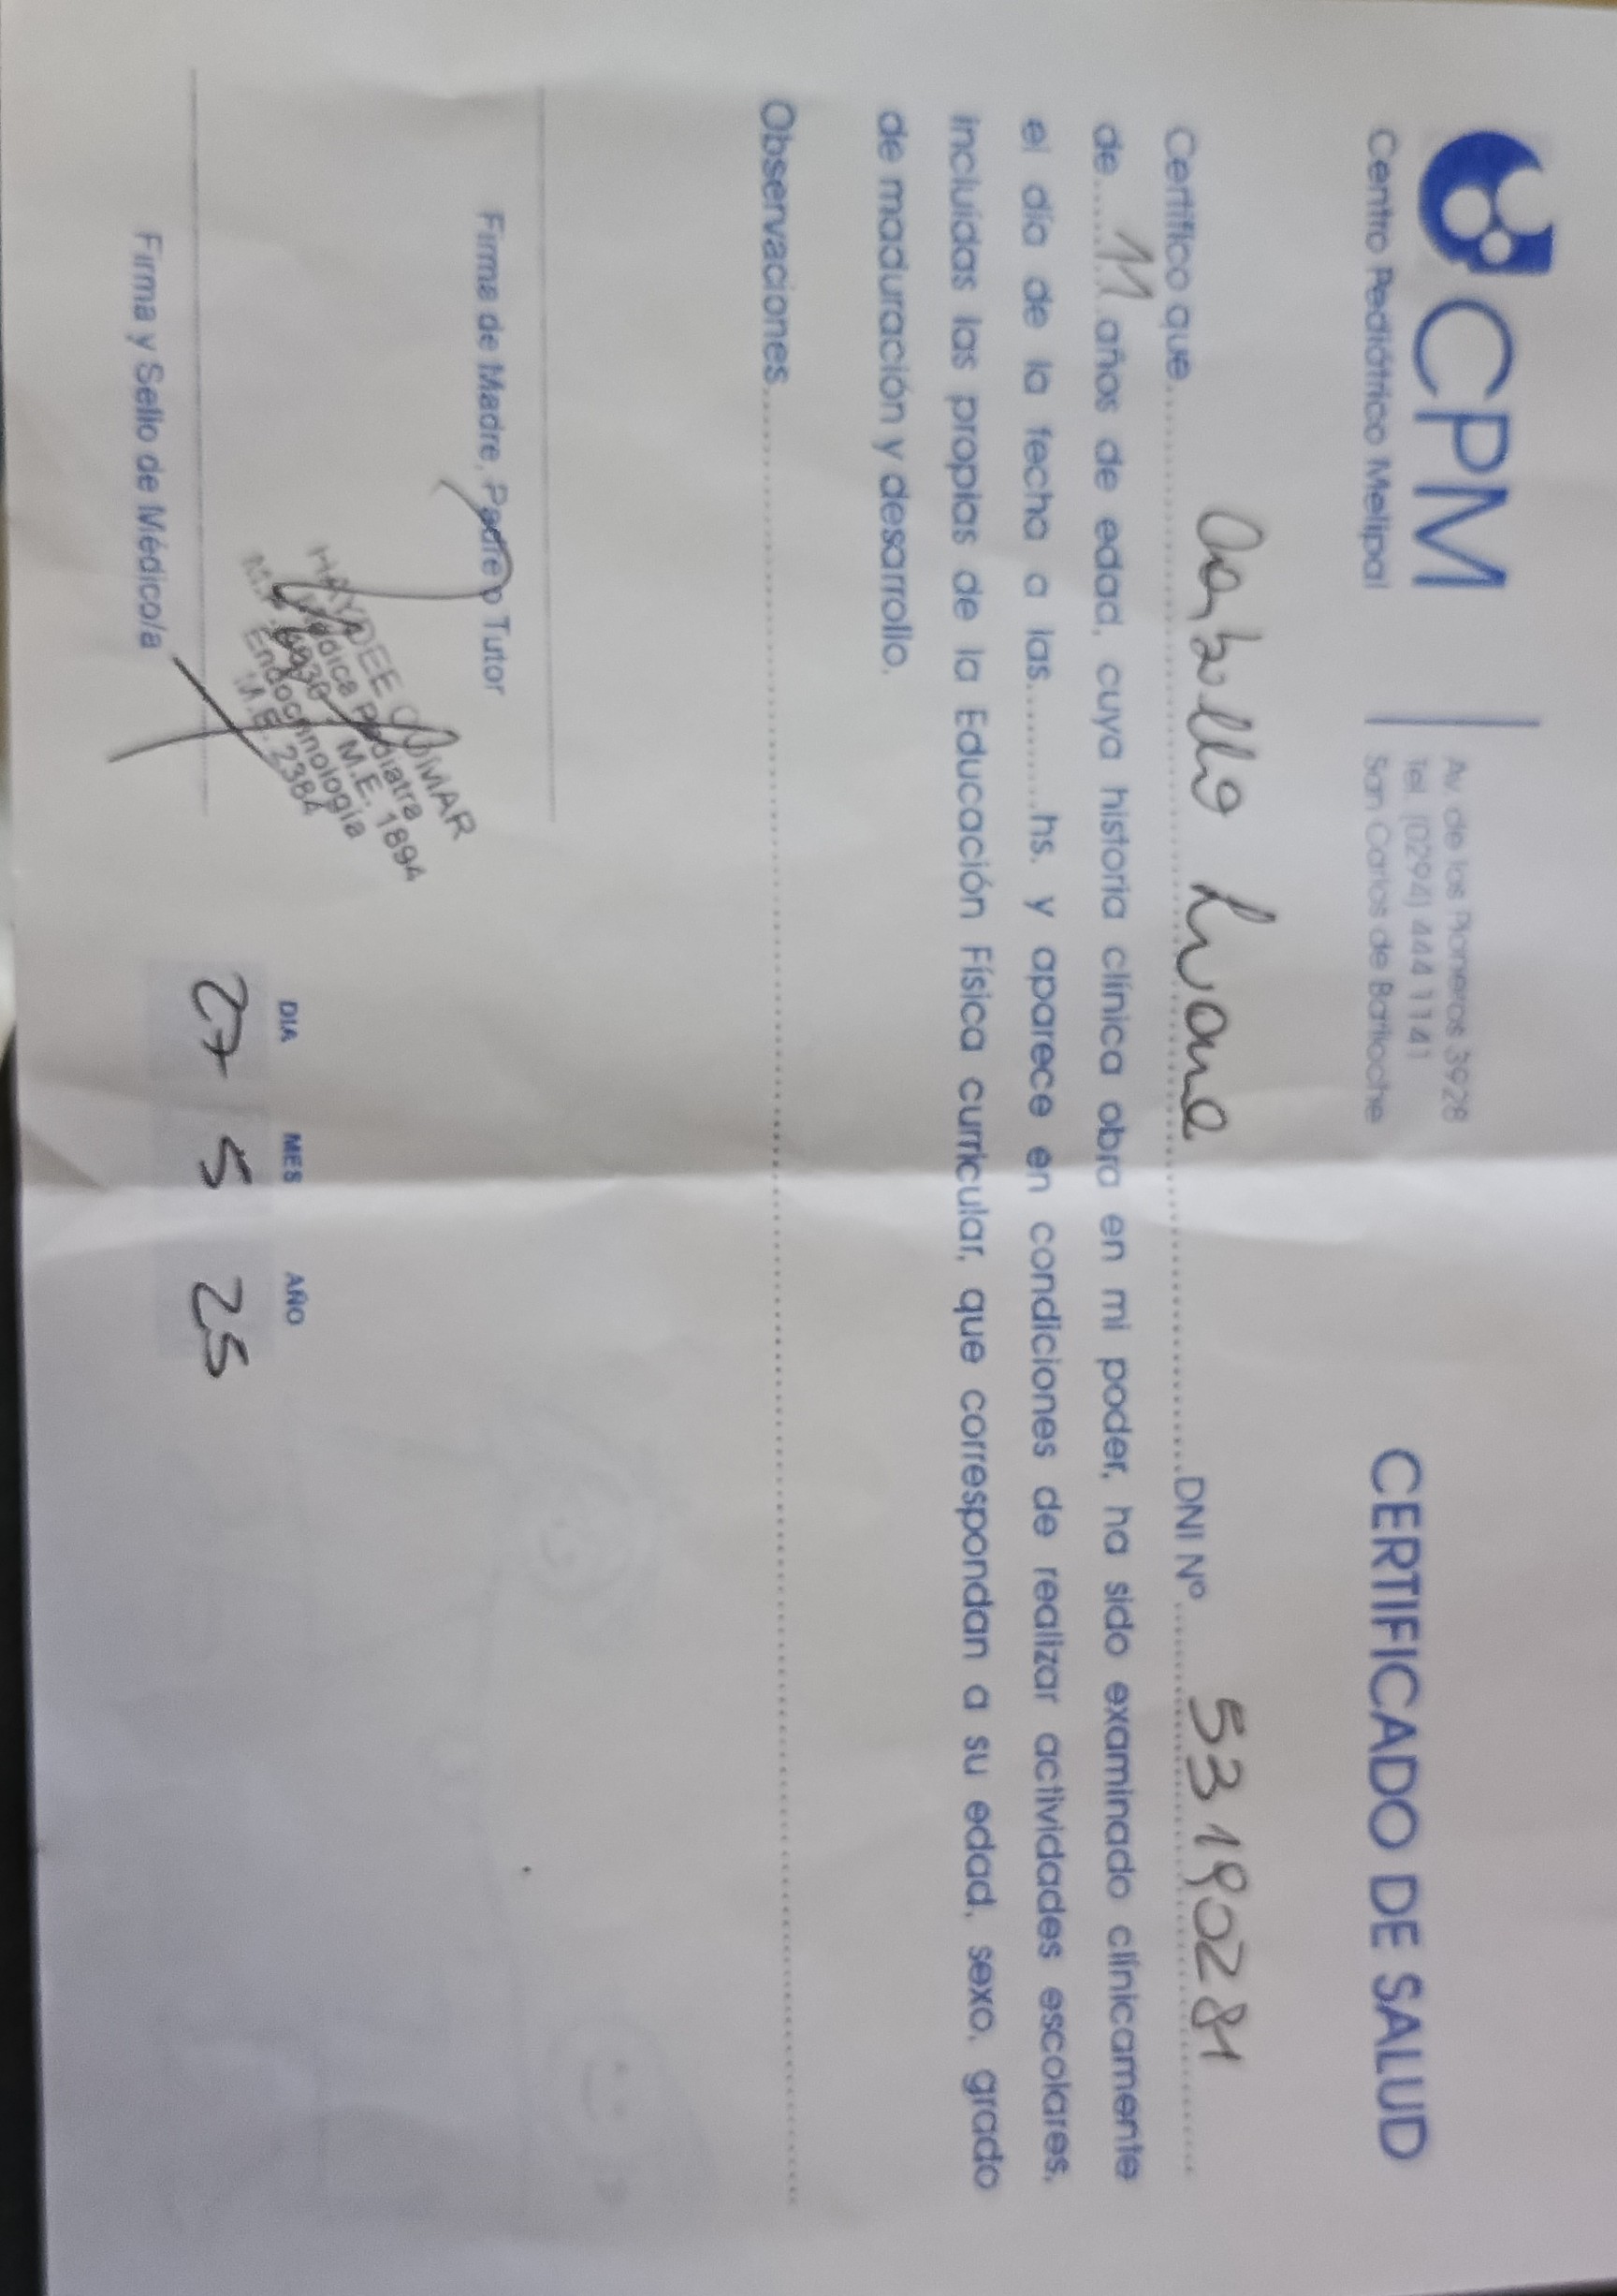 CPM
Centro Pediátrico Melipal
Av. de los Pioneros 3928
Tel. (0294) 444 1141
San Carlos de Bariloche
CERTIFICADO DE SALUD
Certifico que.......... Luane ..........DNI Nº .......... 53190281
de.....11.años de edad, cuya historia clínica obra en mi poder, ha sido examinado clínicamente
el día de la fecha a las..........hs. y aparece en condiciones de realizar actividades escolares,
incluídas las propias de la Educación Física curricular, que correspondan a su edad, sexo, grado
de maduración y desarrollo.
Observaciones..........
Firma de Madre, Padre o Tutor
HAYDEE
Médica Pediatra
M.E. 1894
Endocrinología
M.E. 2384
Firma y Sello de Médico/a
DIA MES AÑO
27 5 25